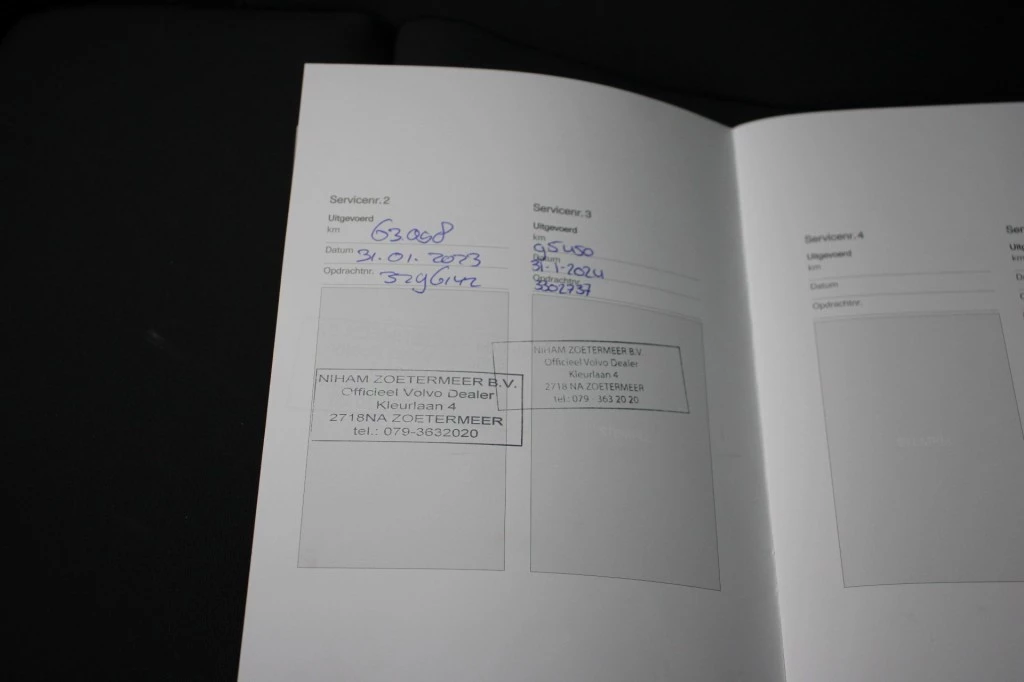 Servicenr. 2
Uitgevoerd
km 63098
Datum 31.01.2023
Opdrachtnr. 3296142
NIHAM ZOETERMEER B.V.
Officieel Volvo Dealer
Kleurlaan 4
2718NA ZOETERMEER
tel.: 079-3632020
Servicenr. 3
Uitgevoerd
km 95450
Datum 31-1-2024
Opdrachtnr. 3302737
NIHAM ZOETERMEER B.V.
Officieel Volvo Dealer
Kleurlaan 4
2718 NA ZOETERMEER
tel.: 079 - 363 20 20
Servicenr. 4
Uitgevoerd
km
Datum
Opdrachtnr.